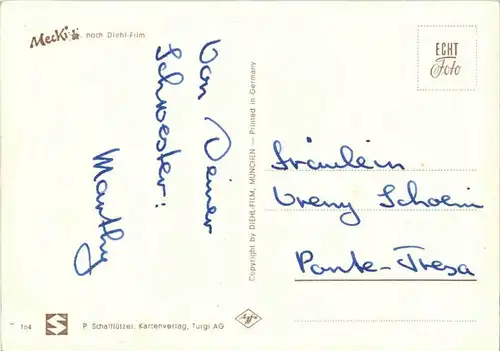 Mecki nach Diehl-Film
ECHT
Foto
Von Deiner
Schwester:
Marthy
Copyright by DIEHL-FILM, MÜNCHEN — Printed in Germany
Fräulein
Vreny Schoein
Ponte-Tresa
164
P. Schafflützel, Kartenverlag, Turgi AG
Agfa